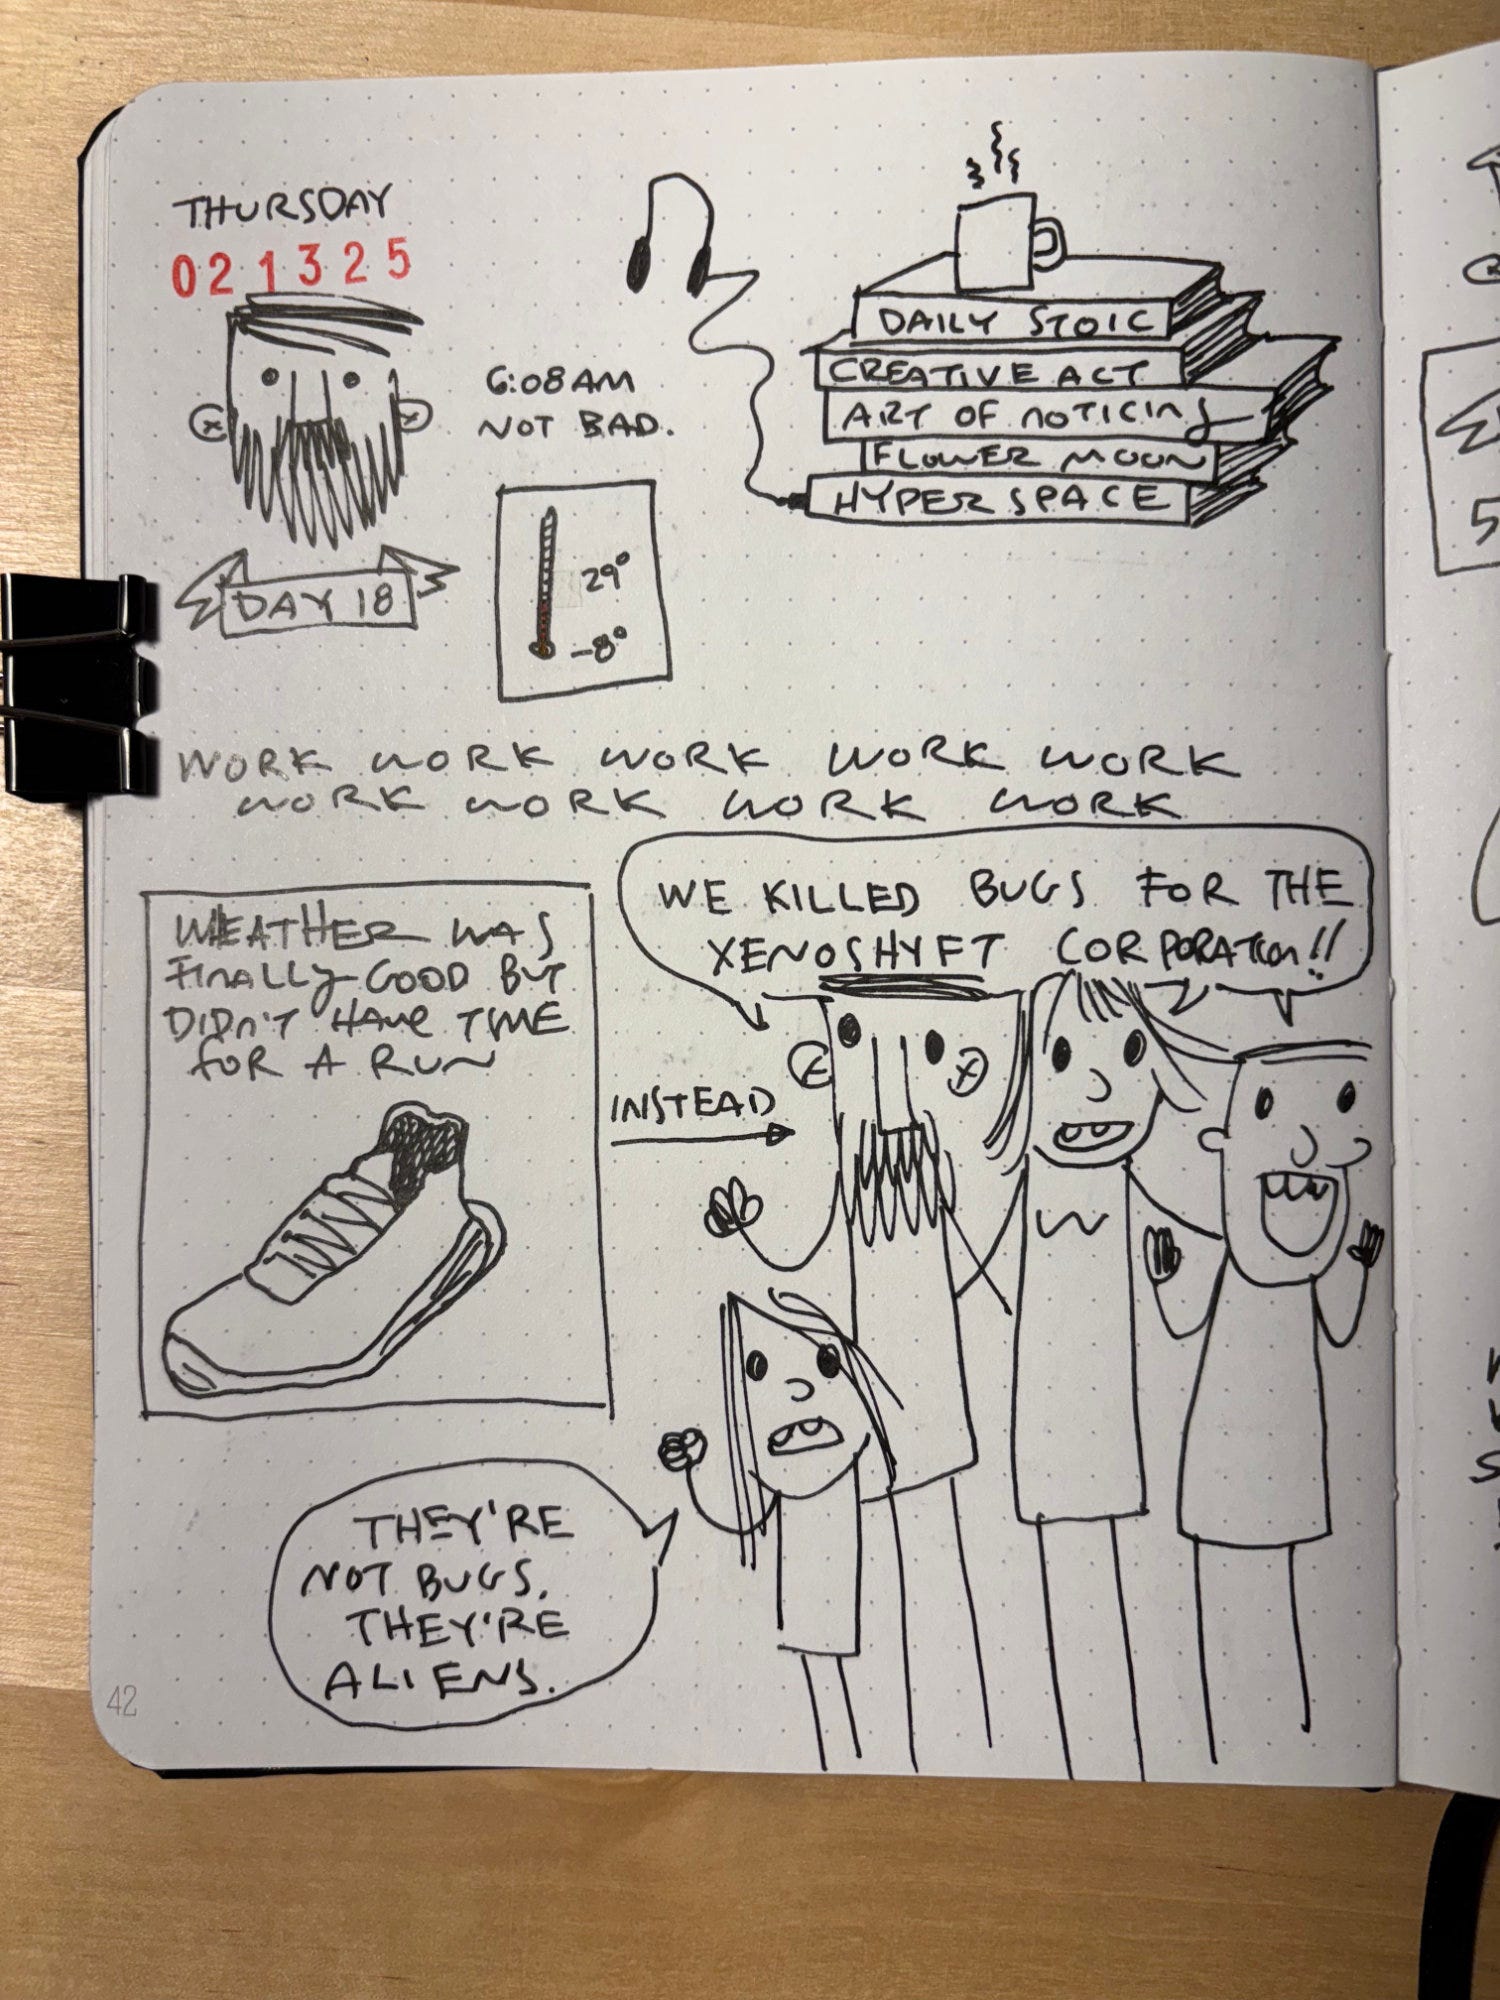 THURSDAY
021325
6:08AM
NOT BAD.
DAY 18
29°
-8°
DAILY STOIC
CREATIVE ACT
ART OF NOTICING
FLOWER MOON
HYPERSPACE
WORK WORK WORK WORK WORK
WORK WORK WORK WORK
WEATHER WAS
FINALLY GOOD BUT
DIDN'T HAVE TIME
FOR A RUN
INSTEAD
WE KILLED BUGS FOR THE
XENOSHYFT CORPORATION!!
THEY'RE
NOT BUGS.
THEY'RE
ALIENS.
42